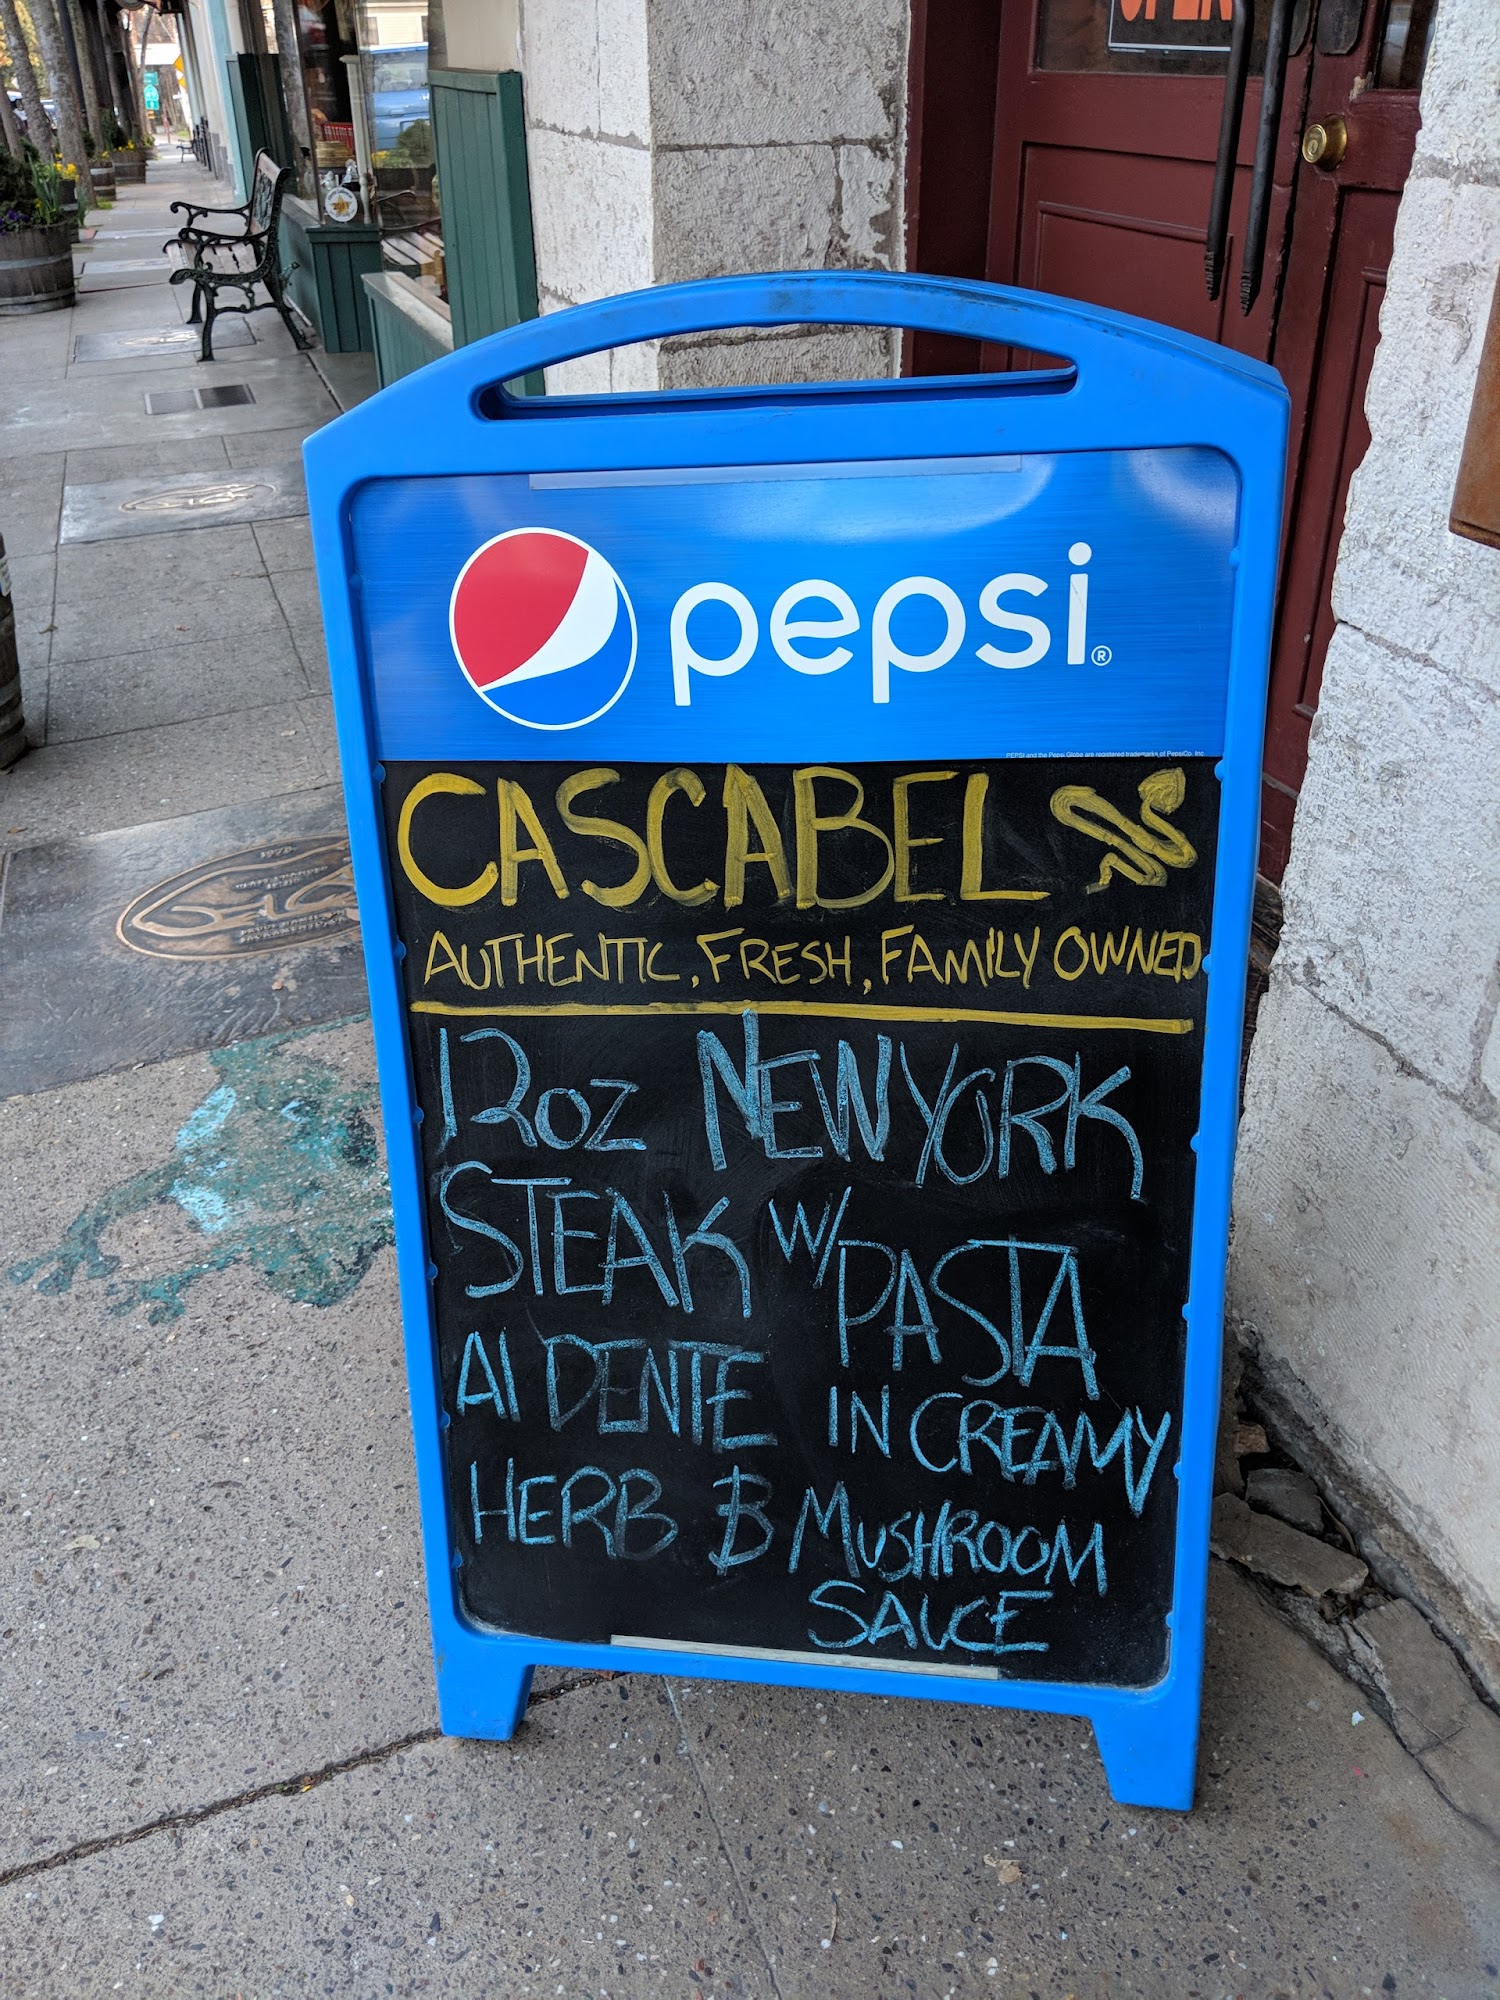 OPEN
pepsi®
PEPSI and the Pepsi Globe are registered trademarks of PepsiCo, Inc.
CASCABEL
AUTHENTIC, FRESH, FAMILY OWNED
12oz NEW YORK
STEAK W/ PASTA
Al DENTE IN CREAMY
HERB & MUSHROOM
SAUCE